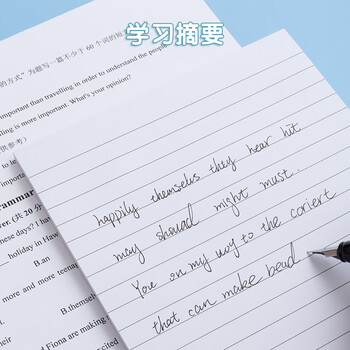 学习摘要
的方式"为题写一篇不少于 60 个词的短
important than travelling in order to understand the people
elling is more important. What's your opinion?
供参考)
to le
is imp
rammar
ver. (共 20 分
these days? I ha
holiday in Haw
B.an
more and more teenag
B.
and Fiona are making
happily themselves they hear hit
may shouad might must.
You on my way to the coriert
that can make bead